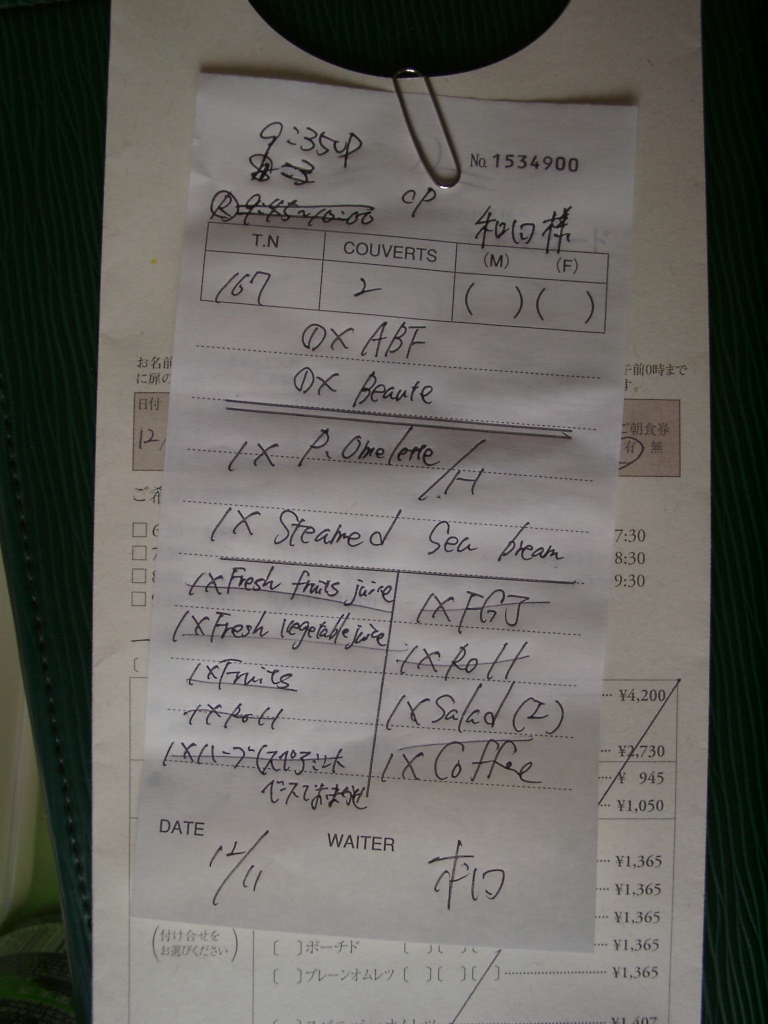 9:35 UP
No.1534900
Ⓡ 9:45~10:00
CP
様
T.N COUVERTS (M) (F)
167 2 ( ) ( )
①× ABF
①× Beaute
お名前
に扉の
午前0時まで
す。
日付
ご朝食券
12/
有 無
1× P. Omelette /H
ご希
1× Steamed Sea bream
7:30
8:30
9:30
1×Fresh fruits juice
1×FGJ
1×Fresh vegetable juice
1×Roll
1×Fruits
¥4,200
1×Roll
1×Salad (I)
¥2,730
1×ハーブ(スペアミント
1×Coffee
¥ 945
ベースでおまかせ
¥1,050
DATE 12/11 WAITER
¥1,365
¥1,365
¥1,365
(付け合せを
お選びください)
[ ]ポーチド [ ][ ¥1,365
[ ]プレーンオムレツ [ ][ ][ ] ¥1,365
¥1,407